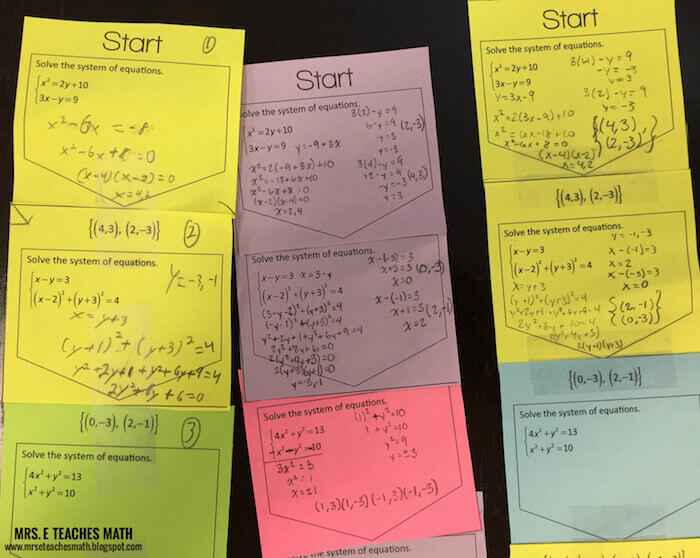 Start
①
Solve the system of equations.
x² = 2y + 10
3x − y = 9
x² − 6x = −8
x² − 6x + 8 = 0
(x − 4)(x − 2) = 0
x = 4, 2
{(4, 3), (2, −3)}
②
Solve the system of equations.
x − y = 3
(x − 2)² + (y + 3)² = 4
y = −3, −1
x = y + 3
(y + 1)² + (y + 3)² = 4
y² + 2y + 1 + y² + 6y + 9 = 4
2y² + 8y + 6 = 0
{(0, −3), (2, −1)}
③
Solve the system of equations.
4x² + y² = 13
x² + y² = 10
MRS. E TEACHES MATH
www.mrseteachesmath.blogspot.com
Start
olve the system of equations.
x² = 2y + 10
3x − y = 9
y = −9 + 3x
x² = 2(−9 + 3x) + 10
x² = −18 + 6x + 10
x² − 6x + 8 = 0
(x − 2)(x − 4) = 0
x = 2, 4
3(2) − y = 9
6 − y = 9
(2, −3)
−y = 3
y = −3
3(4) − y = 9
12 − y = 9
(4, 3)
−y = −3
y = 3
Solve the system of equations.
x − y = 3
x = 3 − y
(x − 2)² + (y + 3)² = 4
(3 − y − 2)² + (y + 3)² = 4
(−y − 1)² + (y + 3)² = 4
y² + 2y + 1 + y² + 6y + 9 = 4
2y² + 8y + 6 = 0
2(y² + 4y + 3) = 0
2(y + 3)(y + 1) = 0
y = −3, −1
x − (−3) = 3
x + 3 = 3
(0, −3)
x = 0
x − (−1) = 3
x + 1 = 3
(2, −1)
x = 2
Solve the system of equations.
4x² + y² = 13
x² + y² = 10
3x² = 3
x² = 1
x = ±1
(1)² + y² = 10
1 + y² = 10
y² = 9
y = ±3
(1, 3)(1, −3)(−1, 3)(−1, −3)
Start
Solve the system of equations.
x² = 2y + 10
3x − y = 9
y = 3x − 9
x² = 2(3x − 9) + 10
x² = 6x − 18 + 10
x² − 6x + 8 = 0
(x − 4)(x − 2)
x = 4, 2
3(4) − y = 9
−y = −3
y = 3
3(2) − y = 9
y = −3
{(4, 3),
(2, −3)}
{(4, 3), (2, −3)}
Solve the system of equations.
x − y = 3
(x − 2)² + (y + 3)² = 4
x = y + 3
(y + 1)² + (y + 3)² = 4
y² + 2y + 1 + y² + 6y + 9 = 4
2y² + 8y + 10 = 4
2(y² + 4y + 3)
2(y + 1)(y + 3)
y = −1, −3
x − (−1) = 3
x = 2
x − (−3) = 3
x = 0
{(2, −1)
(0, −3)}
{(0, −3), (2, −1)}
Solve the system of equations.
4x² + y² = 13
x² + y² = 10